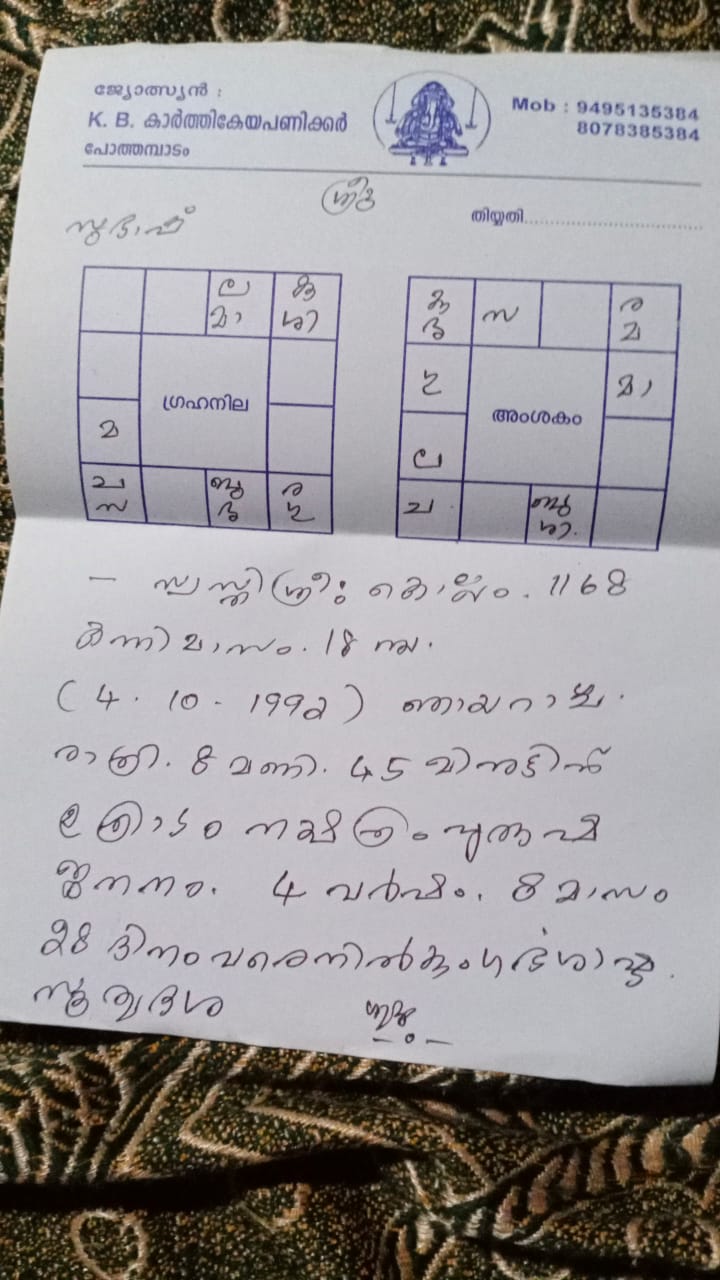 ജ്യോത്സ്യൻ :
K. B. കാർത്തികേയപണിക്കർ
പോത്തമ്പാടം
Mob : 9495135384
8078385384
ശ്രീ
തിയ്യതി
സുഭാഷ്
ല കു
മാ ശി
ഗ്രഹനില
മ
ച ബു ര
സ ഭ
കു സ ര
ഭ മ
മാ
അംശകം
ല
ച ബു
ശി
– സ്വസ്തിശ്രീ: കൊല്ലം. 1168
കന്നിമാസം. 18 നു.
(4. 10 - 1992) ഞായറാഴ്ച.
രാത്രി. 8 മണി. 45 മിനുട്ടിന്
ഉത്രാടം നക്ഷത്രം പുരുഷ
ജനനം. 4 വർഷം. 8 മാസം
28 ദിനം വരെ നിൽക്കും ഗർഭശിഷ്ട
സൂര്യദശ
ശുഭം